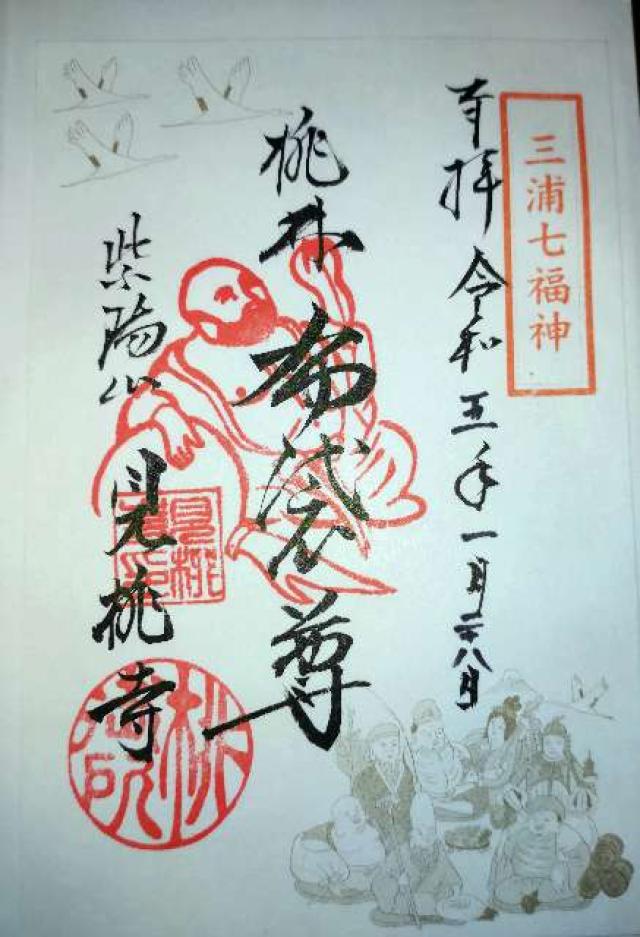 三浦七福神
奉拝 令和五年一月二十八日
桃林 布袋尊
紫陽山 見桃寺